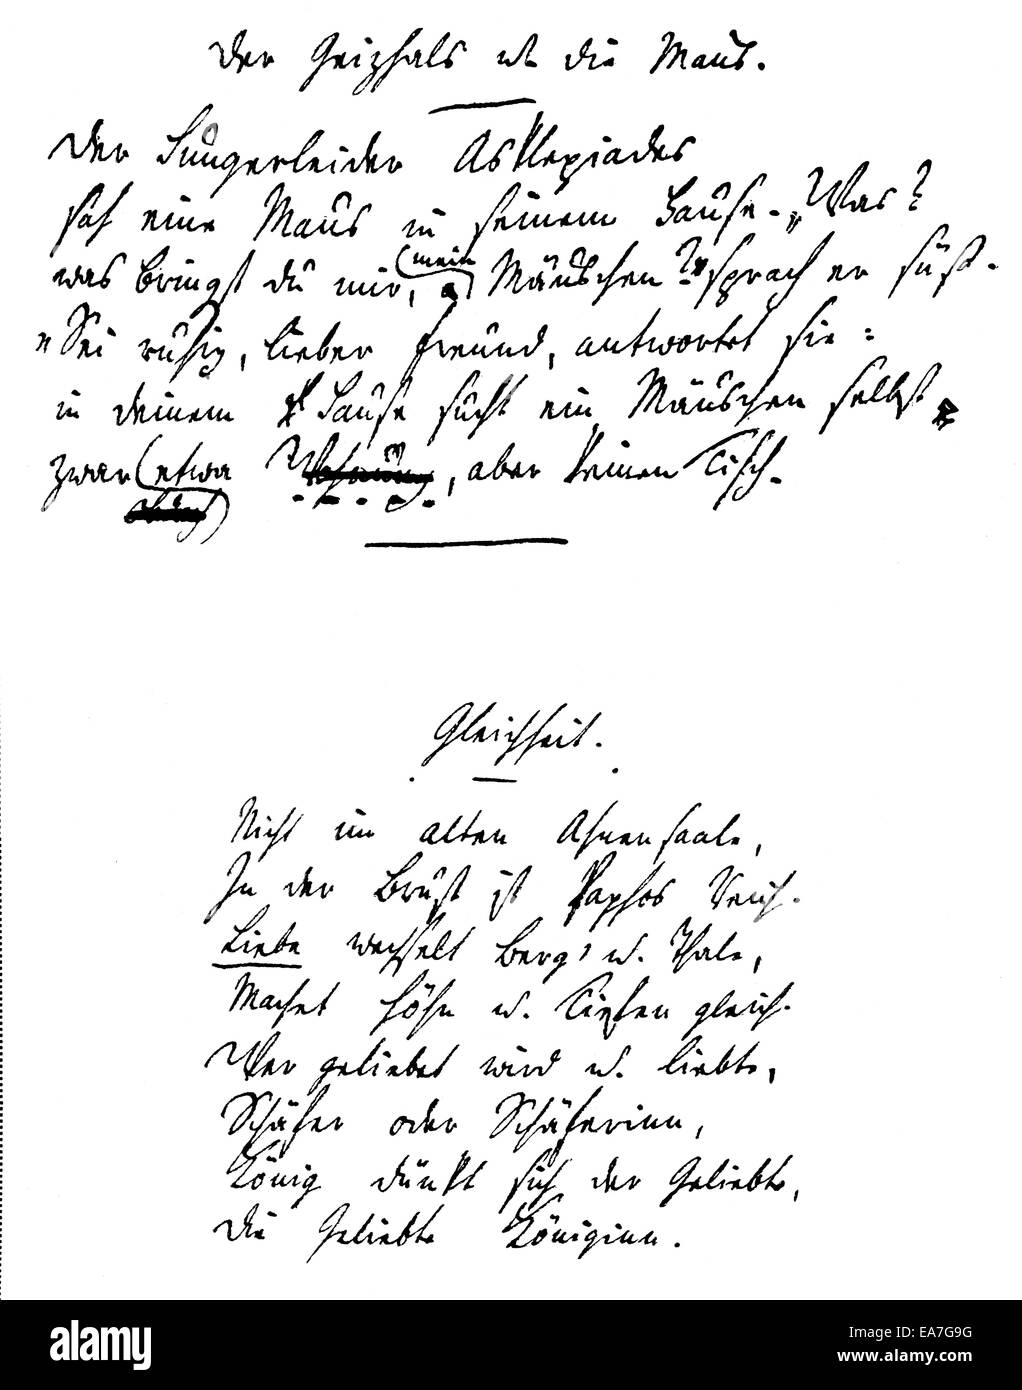 Der Geizhals u. die Maus.
Der Hungerleider Asklepiades
sah eine Maus in seinem Hause. „Was?
was bringst du mir, mein Mäuschen?" sprach er süß.
„Sei ruhig, lieber Freund, antwortet sie:
in deinem Hause sucht ein Mäuschen selbst
zwar etwa Wohnung, aber keinen Tisch.
Gleichheit.
Nicht im alten Ahnensaale,
In der Brust ist Paphos Reich.
Liebe wechselt Berg' u. Thale,
Machet Höhn u. Tiefen gleich.
Wer geliebet wird u. liebte,
Schäfer oder Schäferinn,
König dünkt sich der Geliebte,
Die Geliebte Königinn.
alamy
Image ID: EA7G9G
www.alamy.com